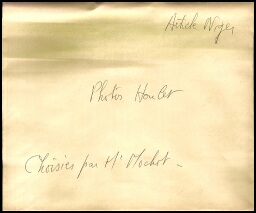 Article Niger
Photos Houlet
Choisies par Mr Mochot -